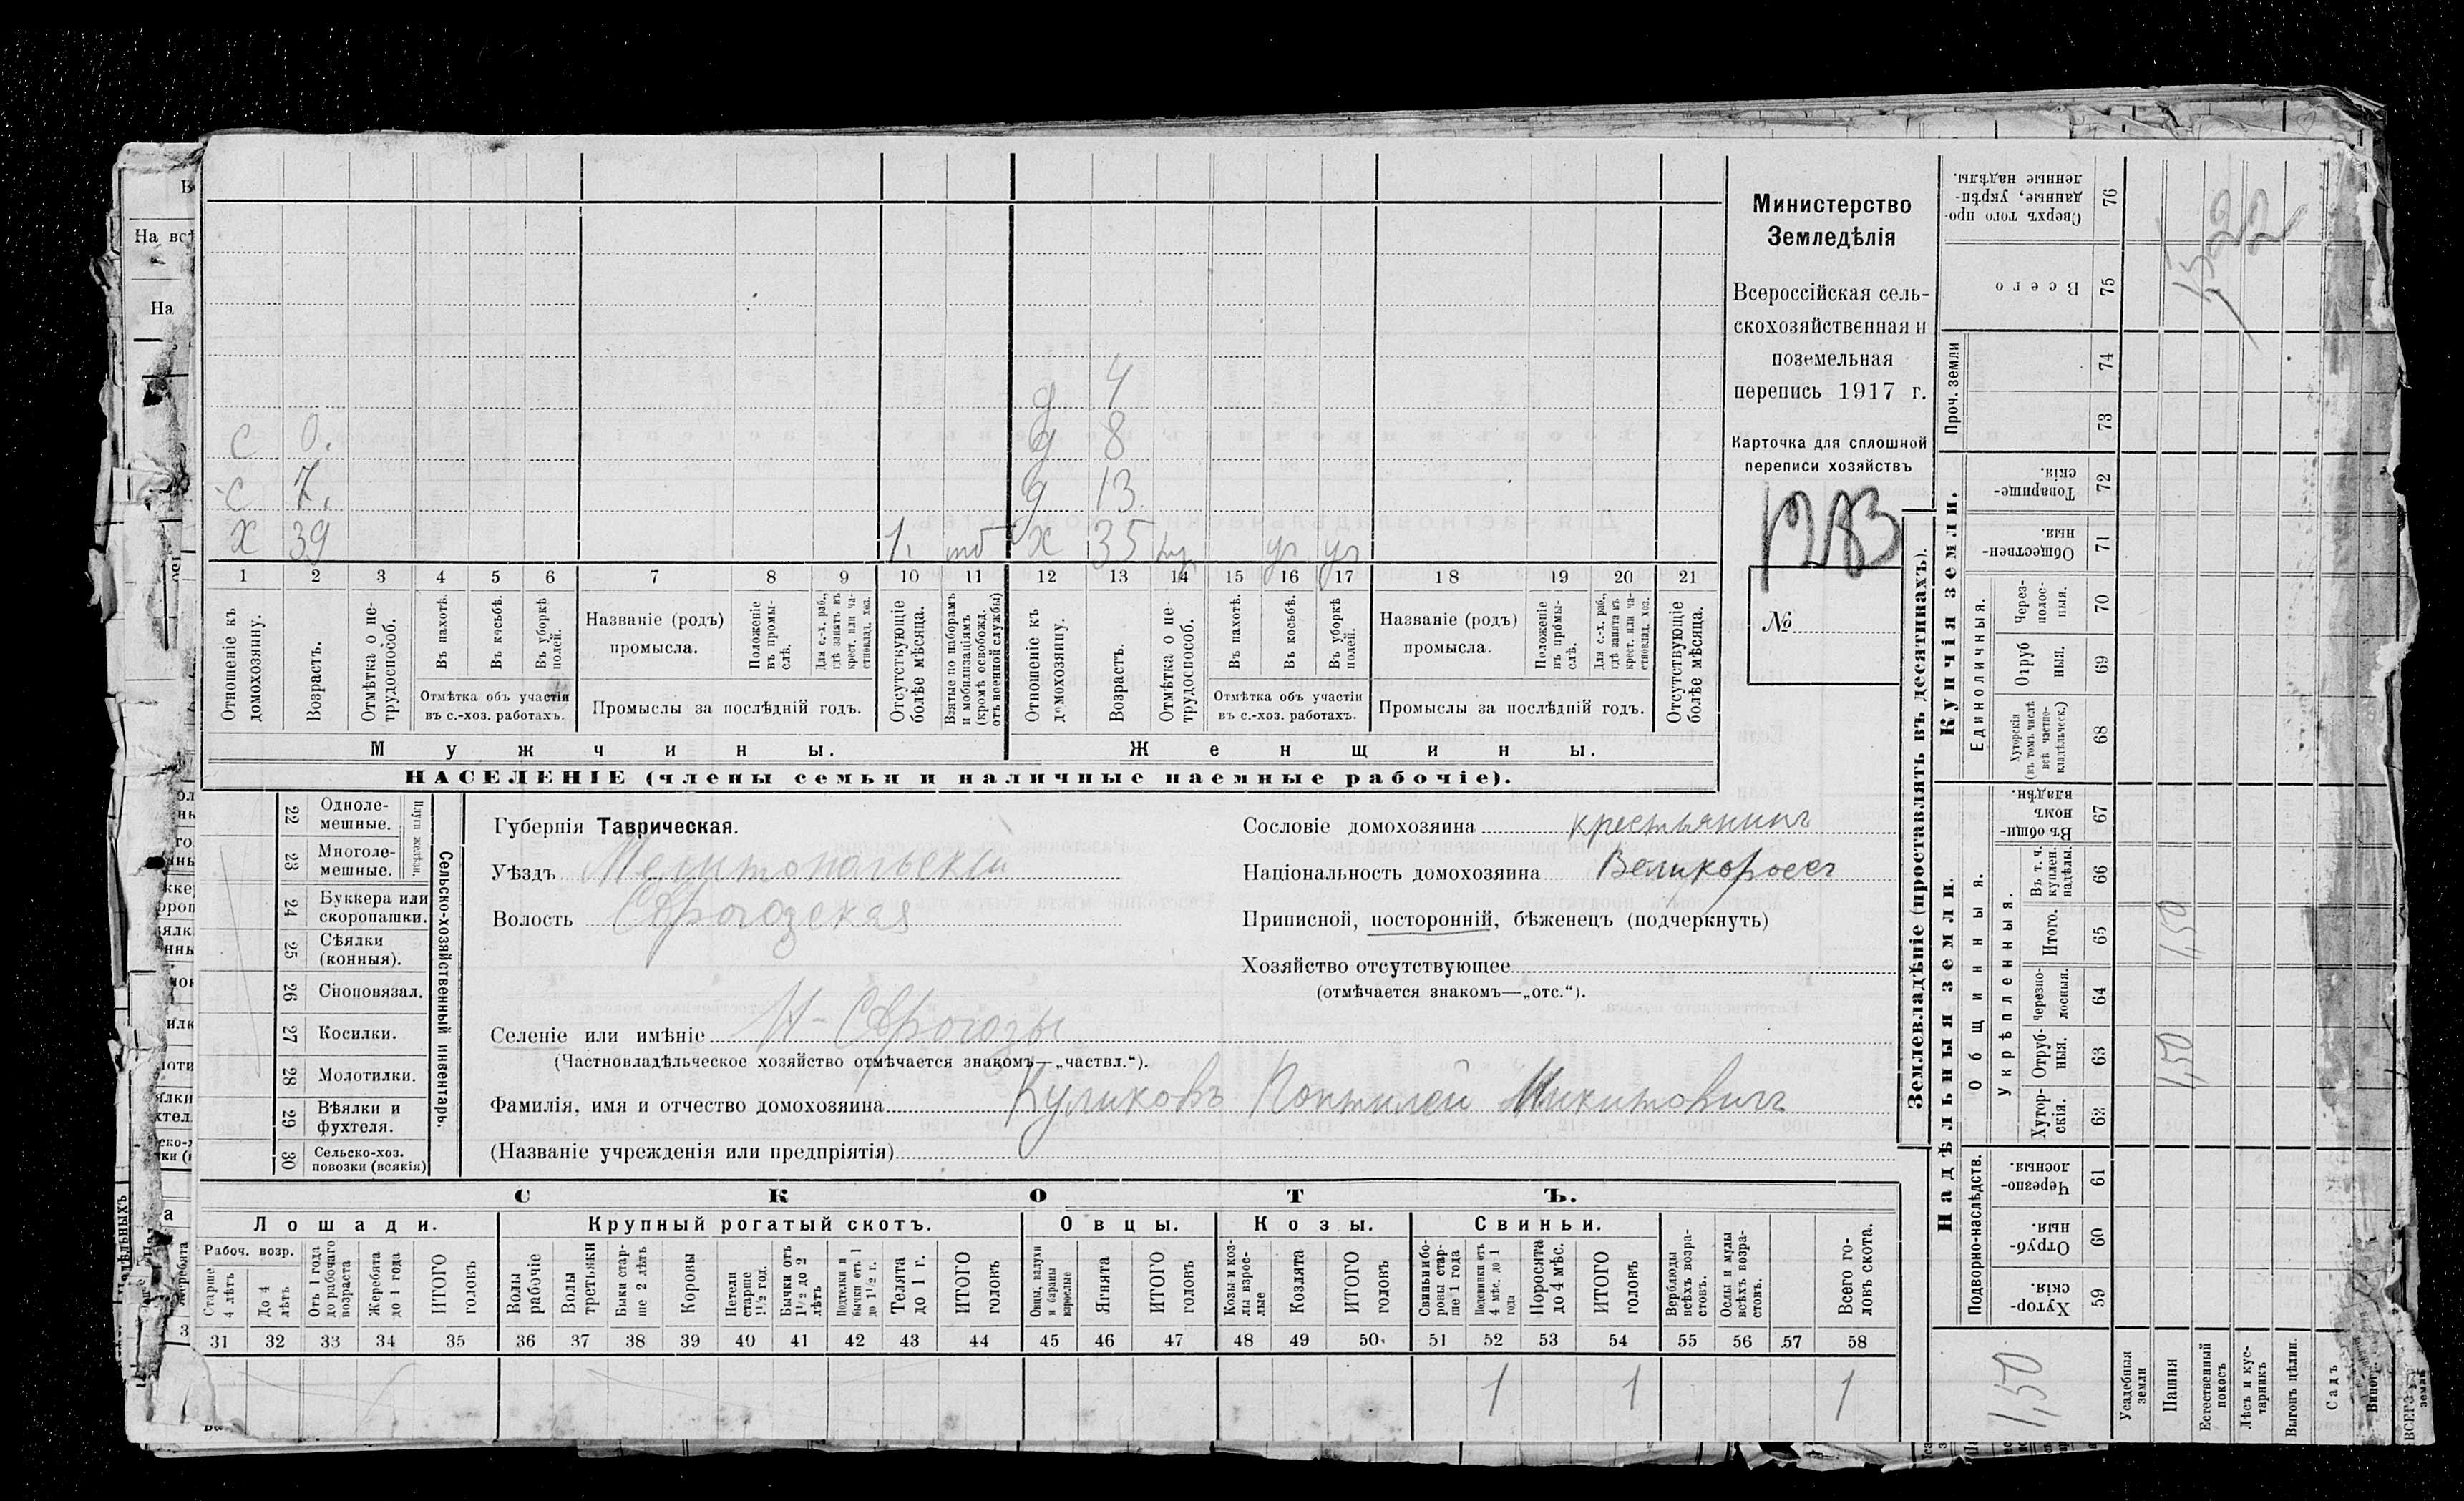 Министерство
Земледѣлія
Всероссійская сель-
скохозяйственная и
поземельная
перепись 1917 г.
Карточка для сплошной
переписи хозяйствъ
1283
№
д 4
с 0. д 8
с 7. д 13
х 39 1. х 35
1 2 3 4 5 6 7 8 9 10 11 12 13 14 15 16 17 18 19 20 21
Отношеніе къ домохозяину.
Возрастъ.
Отмѣтка о не-трудоспособ.
Въ пахотѣ.
Въ косьбѣ.
Въ уборкѣ полей.
Отмѣтка объ участіи
въ с.-хоз. работахъ.
Названіе (родъ)
промысла.
Положеніе въ промы-слѣ.
Для с.-х. раб., гдѣ занятъ въ крест. или ча-стновлад. хоз.
Промыслы за послѣдній годъ.
Отсутствующіе болѣе мѣсяца.
Взятые по наборамъ и мобилизаціямъ (кромѣ освобожд. отъ военной службы)
Отношеніе къ домохозяину.
Возрастъ.
Отмѣтка о не-трудоспособ.
Въ пахотѣ.
Въ косьбѣ.
Въ уборкѣ полей.
Отмѣтка объ участіи
въ с.-хоз. работахъ.
Названіе (родъ)
промысла.
Положеніе въ промы-слѣ.
Для с.-х. раб., гдѣ занята въ крест. или ча-стновлад. хоз.
Промыслы за послѣдній годъ.
Отсутствующіе болѣе мѣсяца.
Мужчины.
Женщины.
НАСЕЛЕНІЕ (члены семьи и наличные наемные рабочіе).
Сельско-хозяйственный инвентарь.
Плуги желѣзн.
22 Одноле-мешные.
23 Многоле-мешные.
24 Буккера или скоропашки.
25 Сѣялки (конныя).
26 Сноповязал.
27 Косилки.
28 Молотилки.
29 Вѣялки и фухтеля.
30 Сельско-хоз. повозки (всякія)
Губернія Таврическая.
Уѣздъ Мелитопольскій
Волость Сѣрогозская
Селеніе или имѣніе Н-Сѣрогозы
(Частновладѣльческое хозяйство отмѣчается знакомъ—„частвл.“).
Фамилія, имя и отчество домохозяина Куликовъ Пантилеи Микитовичъ
(Названіе учрежденія или предпріятія)
Сословіе домохозяина крестьянинъ
Національность домохозяина Великороссъ
Приписной, посторонній, бѣженецъ (подчеркнуть)
Хозяйство отсутствующее
(отмѣчается знакомъ—„отс.“).
СКОТЪ.
Лошади.
Крупный рогатый скотъ.
Овцы.
Козы.
Свиньи.
Рабоч. возр.
Старше 4 лѣтъ
До 4 лѣтъ
Отъ 1 года до рабочаго возраста
Жеребята до 1 года
ИТОГО головъ
Волы рабочіе
Волы третьяки
Быки стар-ше 2 лѣтъ
Коровы
Нетели старше 1½ год.
Бычки отъ 1½ до 2 лѣтъ
Подтелки и бычки отъ 1 до 1½ г.
Телята до 1 г.
ИТОГО головъ
Овцы, валухи и бараны взрослые
Ягнята
ИТОГО головъ
Козы и коз-лы взрос-лые
Козлята
ИТОГО головъ
Свиньи и бо-ровы стар-ше 1 года
Подсвинки отъ 4 мѣс. до 1 года
Поросята до 4 мѣс.
ИТОГО головъ
Верблюды всѣхъ возра-стовъ.
Ослы и мулы всѣхъ возра-стовъ.
Всего го-ловъ скота.
31 32 33 34 35 36 37 38 39 40 41 42 43 44 45 46 47 48 49 50 51 52 53 54 55 56 57 58
1 1 1
Землевладѣніе (проставлять въ десятинахъ).
Надѣльныя земли.
Купчія земли.
Проч. земли
Подворно-наслѣдств.
Общинныя.
Укрѣпленныя.
Единоличныя.
Сверхъ того про-данные, укрѣп-ленные надѣлы. 76
Всего 75
74
73
Товарище-скія. 72
Обществен-ныя. 71
Через-полос-ныя. 70
Отруб-ныя. 69
Хуторскія (въ томъ числѣ всѣ частно-владѣльческ.) 68
Въ общин-номъ владѣн. 67
Въ т. ч. куплен. надѣлы. 66
Итого. 65
Черезпо-лосныя. 64
Отруб-ныя. 63
Хутор-скія. 62
Черезпо-лосныя. 61
Отруб-ныя. 60
Хутор-скія. 59
1,50
1,50
1,50
Усадебныя земли
Пашня
Естественный покосъ
Лѣсъ и кус-тарникъ
Выгонъ цѣлин.
Садъ
Виногр.